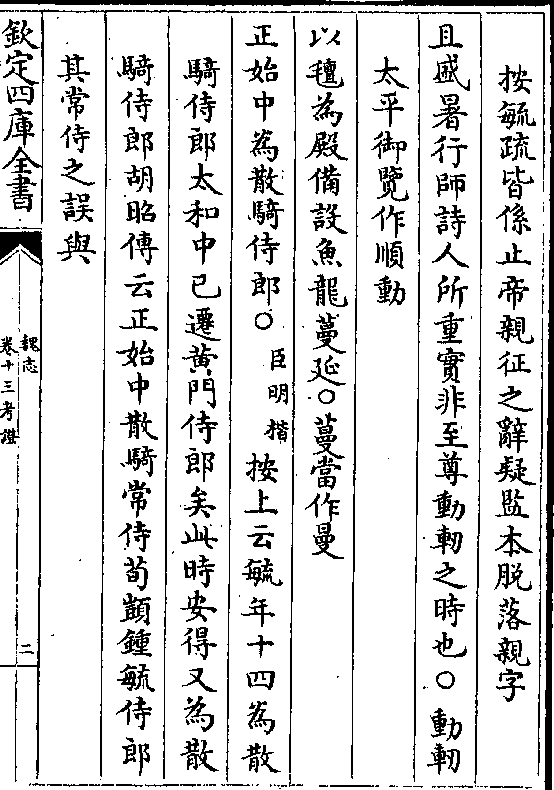 按毓疏皆係止帝親征之辭疑監本脱落親字
且盛暑行師詩人所重實非至尊動軔之時也○動軔
太平御覽作順動
以氊為殿備設魚龍蔓延○蔓當作曼
正始中為散騎侍郎○臣明楷按上云毓年十四為散
騎侍郎太和中已遷黄門侍郎矣此時安得又為散
騎侍郎胡昭傳云正始中散騎常侍荀顗鍾毓侍郎
其常侍之誤與
欽定四庫全書
魏志
卷十三考證
二